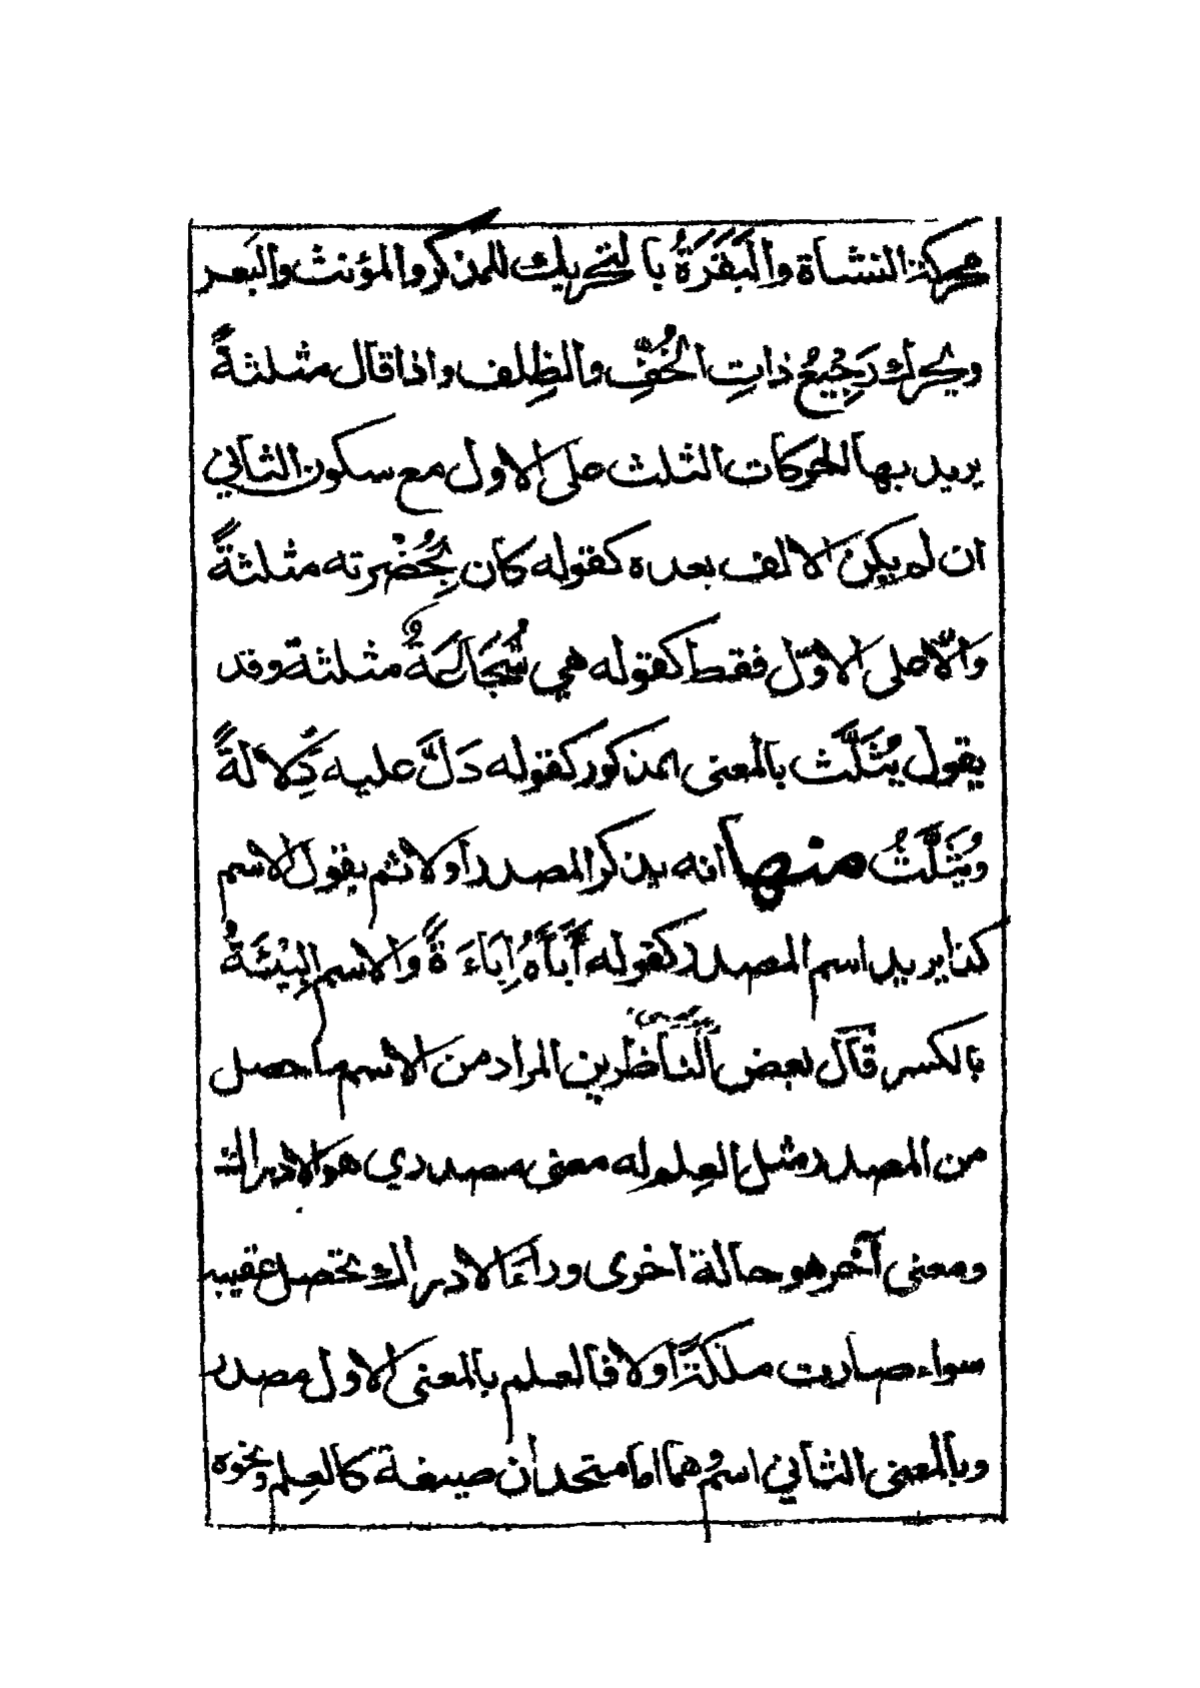 كحركة النشاة والبَقَرَةُ بالتحريك للمذكر والمؤنث والبعر
ويحرك رَجِيعُ ذاتِ الخُفِّ والظِلف واذا قال مثلثةً
يريد بها الحركات الثلث على الاول مع سكون الثاني
ان لم يكن الالف بعده كقوله كان بِحُضْرته مثلثةً
والّا على الاوّل فقط كقوله هي مثلثة وقد
يقول يُثَلَّث بالمعنى المذكور كقوله دَلَّ عليه دِلالةً
ويُثَلَّثُ منها انه يذكر المصدر اولا ثم يقول الاسم
كذا يريد اسم المصدر كقوله أَبَأَهُ إِبَاءَةً والاسم البِيْئَةُ
بالكسر قال بعض الناظرين المراد من الاسم ما حصل
من المصدر مثل العِلم له معنى مصدري هو الادراك
ومعنى آخر هو حالة اخرى وراء الادراك تحصل عقيبه
سواء صارت ملكةً اولا فالعلم بالمعنى الاول مصدر
وبالمعنى الثاني اسم وهما اما متحدان صيغة كالعِلم ونحوه